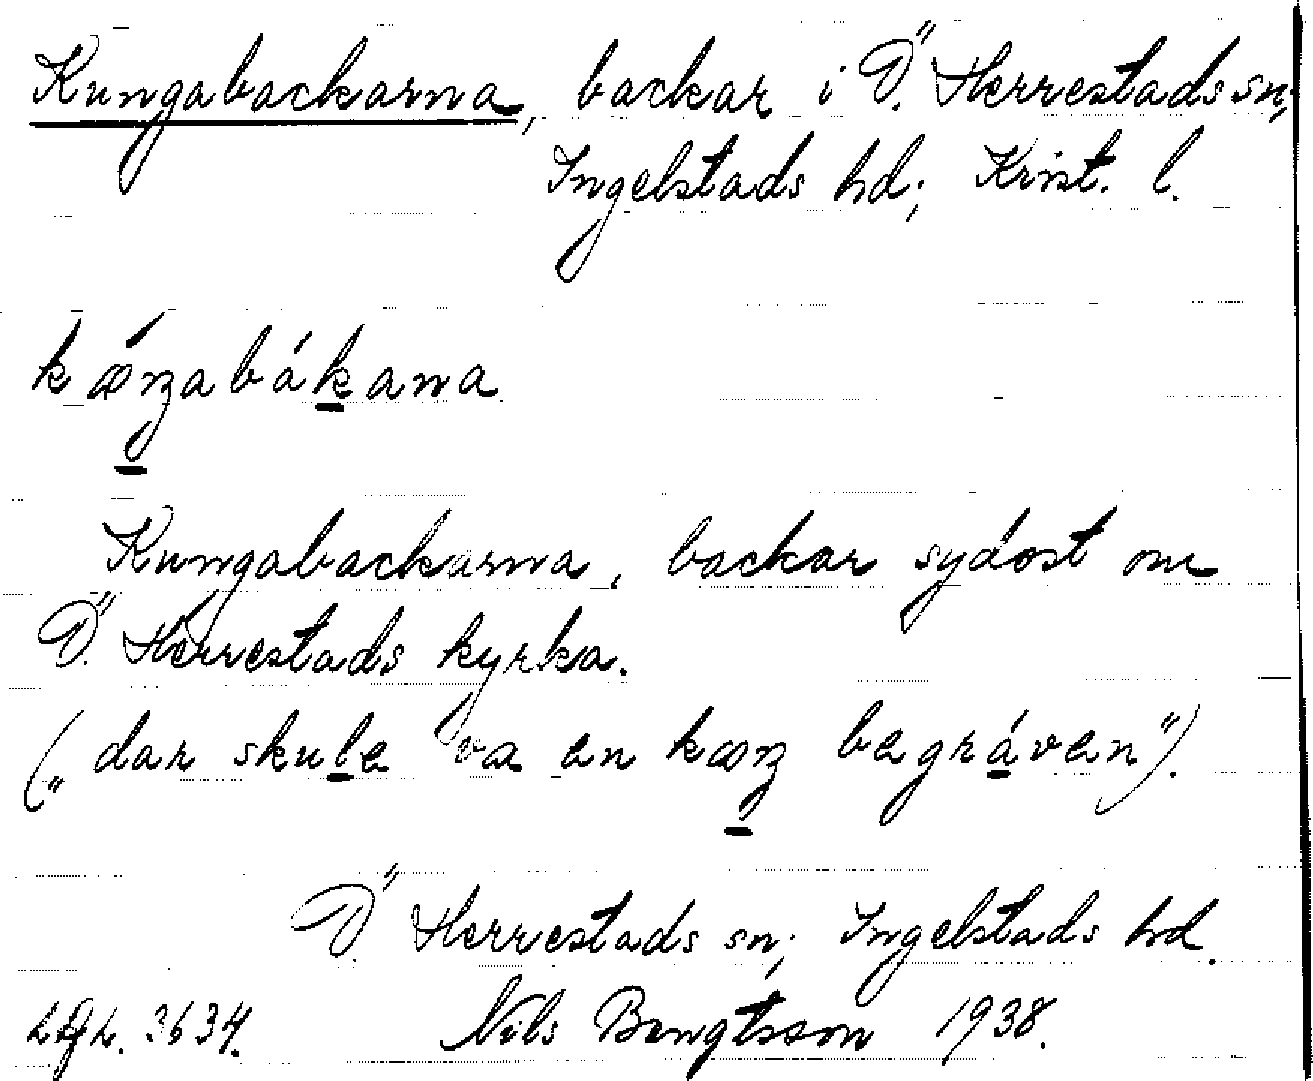 Kungabackarna, backar i Ö. Herrestads sn;
Ingelstads hd; Krist. l.
kœ́ŋabákana
Kungabackarna, backar sydost om
Ö. Herrestads kyrka.
(„dar skule va en kœŋ begráven”).
Ö. Herrestads sn; Ingelstads hd.
3634.
Nils Bengtsson 1938.